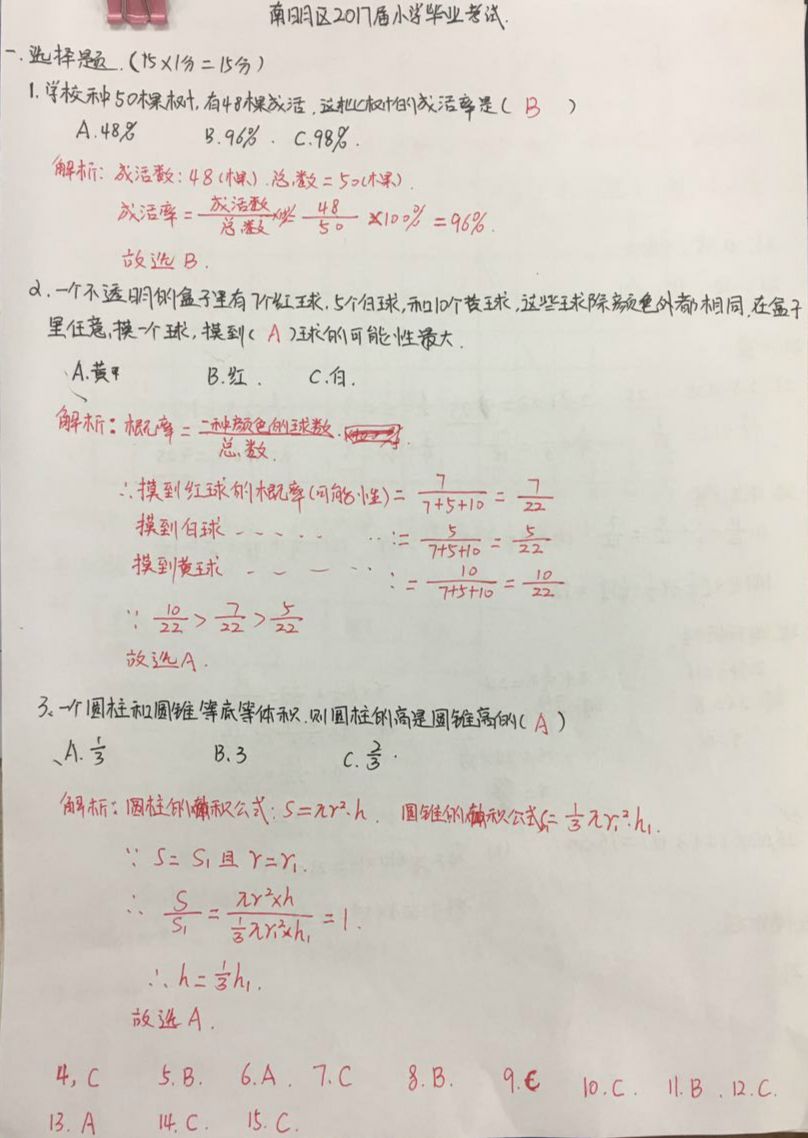 南明区2017届小学毕业考试.
一.选择题.(15×1分=15分)
1.学校种50棵树,有48棵成活,这批树的成活率是( B )
A.48% B.96%. C.98%.
解析:成活数:48(棵).总数=50(棵).
成活率=成活数/总数 48/50 ×100%=96%.
故选B.
2.一个不透明的盒子里有7个红球,5个白球,和10个黄球,这些球除颜色外都相同,在盒子
里任意摸一个球,摸到( A )球的可能性最大.
A.黄 B.红. C.白.
解析:概率=一种颜色的球数/总数.
∴摸到红球的概率(可能性)=7/7+5+10=7/22
摸到白球 - - - - - - :=5/7+5+10=5/22
摸到黄球 - - - - - - :=10/7+5+10=10/22
∵ 10/22>7/22>5/22
故选A.
3、一个圆柱和圆锥等底等体积,则圆柱的高是圆锥高的( A )
、A.1/3 B.3 C.2/3.
解析:圆柱的体积公式:S=πr²·h. 圆锥的体积公式S₁=1/3πr₁²·h₁.
∵ S=S₁且r=r₁.
∴ S/S₁=πr²×h/1/3πr₁²×h₁=1.
∴h=1/3h₁.
故选A.
4,C 5.B. 6.A. 7.C 8.B. 9.C 10.C. 11.B. 12.C.
13.A 14.C. 15.C.